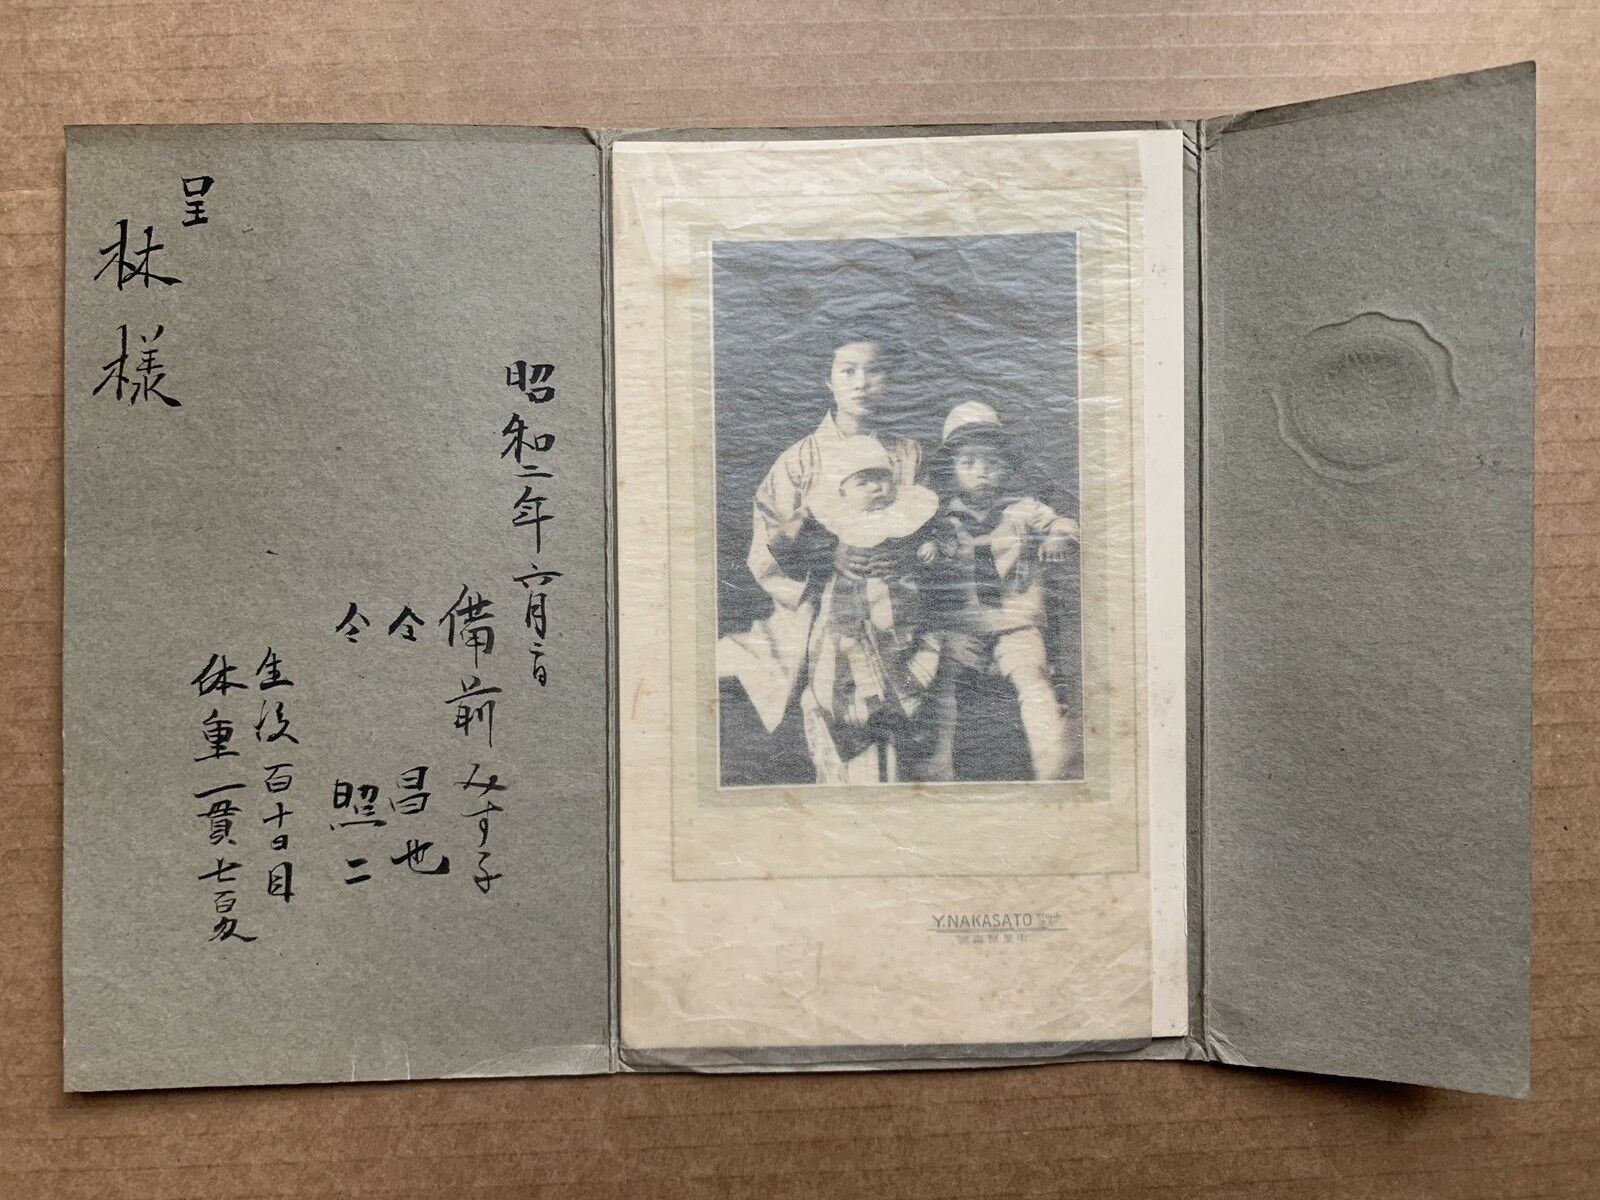 昭和二年六月二日
備前みす子
仝 昌也
仝 照二
生後百十日目
体重一貫七百匁
呈
林様
Y.NAKASATO